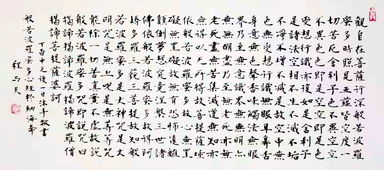 觀自在菩薩行深般若波羅
密多時照見五蘊皆空度一
切苦厄舍利子色不異空空
不異色色即是空空即是色
受想行識亦復如是舍利子
是諸法空相不生不滅不垢
不淨不增不減是故空中無
色無受想行識無眼耳鼻舌
身意無色聲香味觸法無眼
界乃至無意識界無無明亦
無無明盡乃至無老死亦無
老死盡無苦集滅道無智亦
無得以無所得故菩提薩埵
依般若波羅密多故心無罣
礙無罣礙故無有恐怖遠離
顛倒夢想究竟涅槃三世諸
佛依般若波羅密多故得阿
耨多羅三藐三菩提故知般
若波羅密多是大神咒是大
明咒是無上咒是無等等咒
能除一切苦真實不虛故說
般若波羅密多咒即說咒曰
揭諦揭諦波羅揭諦波羅僧
揭諦菩提薩婆訶
般若波羅密多心經